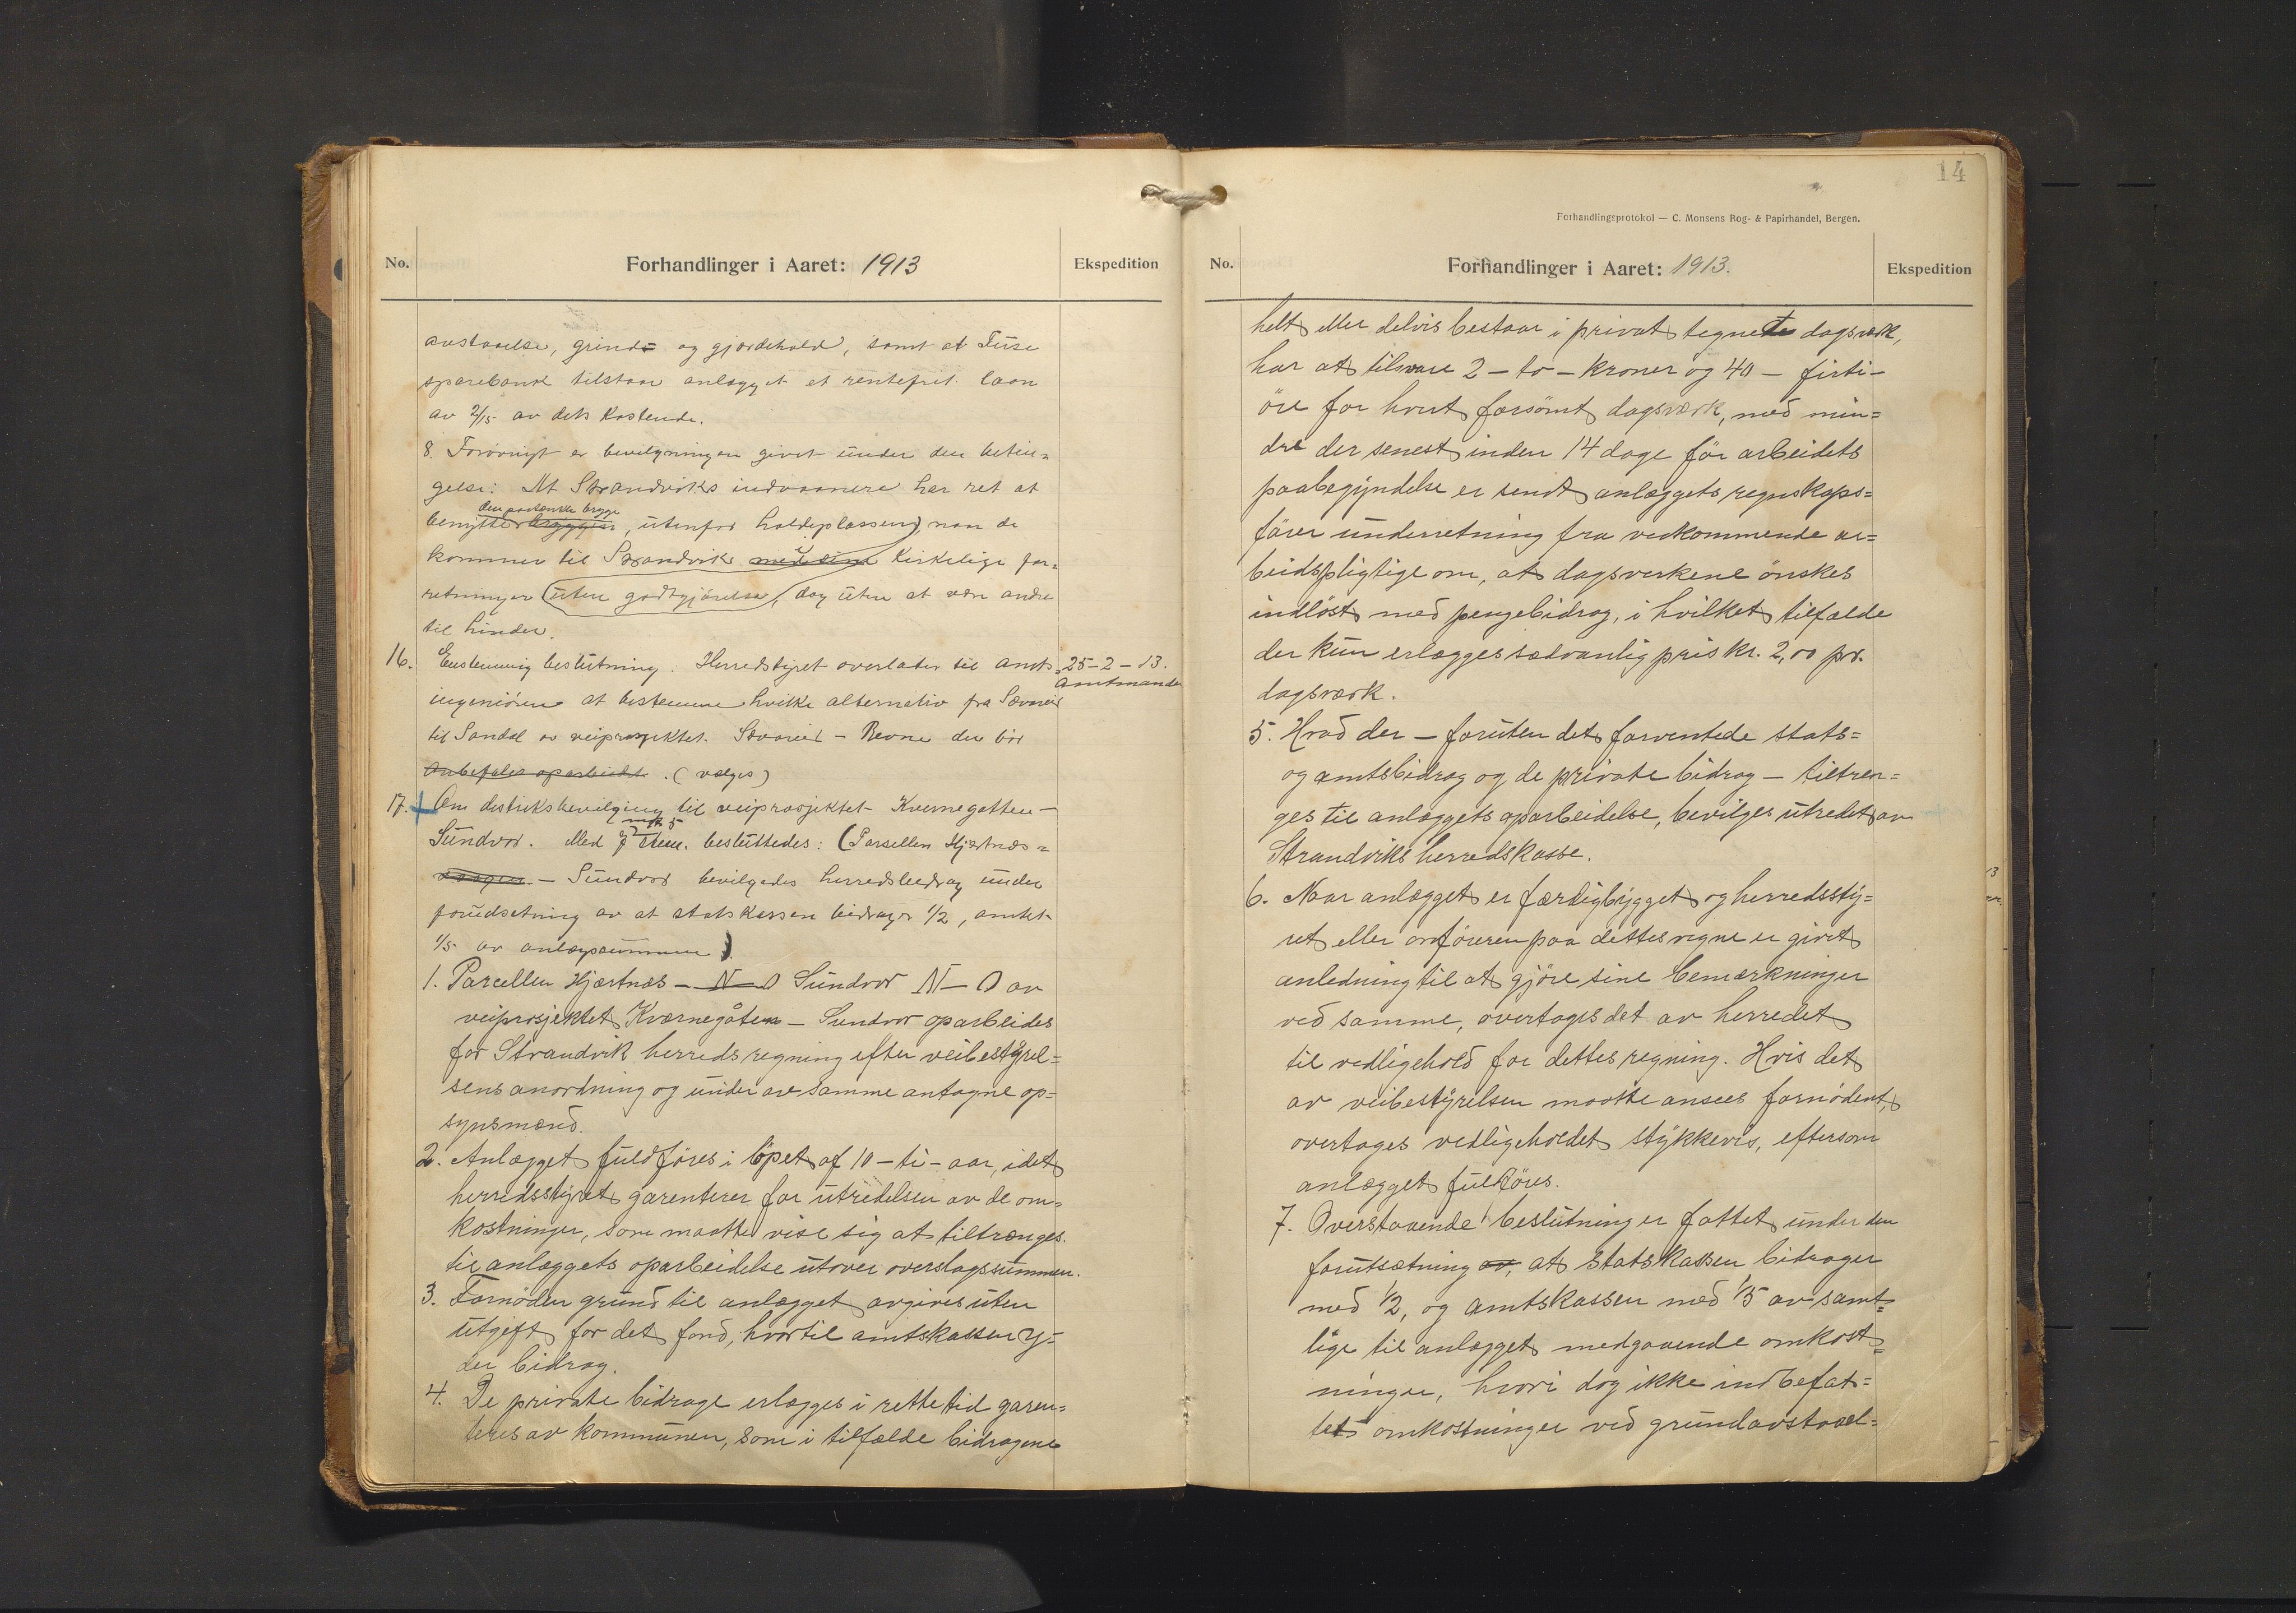 No.
Forhandlinger i Aaret: 1913
Ekspedition
avstaaelse, grind= og gjærdehold, samt at Fuse
sparebank tilstaar anlægget et rentefrit laan
av 2/15 av dets kostende.
8. Forøvrigt er bevilgningen givet under den betin=
gelse: At Strandviks indvaanere har ret at
den paatænkte brygge
benytte bryggen, utenfor holdeplassen, naar de
kommer til Strandvik med sine i kirkelige for=
retninger uten godtgjørelse, dog uten at være andre
til hinder.
16. Enstemmig beslutning. Herredstyret overlater til amts= 25-2-13.
Amtmanden
ingeniøren at bestemme hvilke alternativ fra Sævareid
til Sandal av veiprosjektet Sævareid - Revne der bør
Anbefales oparbeidet. (vælges)
17. Om distriksbevilgning til veiprosjektet Kvernegatten -
mot 5
Sundvor. Med 7 stem. besluttedes: (Parsellen Hjertnæs=
vaagen - Sundvor bevilgedes herredsbidrag under
forudsetning av at statskassen bidrager 1/2, amtet
1/5 av anlægssummen)
1. Parcellen Hjærtnæs - N-O Sundvor N-O av
veiprosjektet Kværnegåten - Sundvor oparbeides
for Strandvik herreds regning efter veibestyrel=
sens anordning og under av samme antagne op=
synsmænd.
2. Anlægget fuldføres i løpet af 10 - ti - aar, idet
herredsstyret garenterer for utredelsen av de om=
kostninger, som maatte vise sig at tiltrænges
til anlæggets oparbeidelse utover overslagssummen.
3. Fornøden grund til anlægget avgives uten
utgift for det fond, hvortil amtskassen y=
der bidrag.
4. De private bidrage erlægges i rette tid garen=
teres av kommunen, som i tilfælde bidragene
14
Forhandlingsprotokol — C. Monsens Bog- & Papirhandel, Bergen.
No.
Forhandlinger i Aaret: 1913.
Ekspedition
helt eller delvis bestaar i privat tegnete dagsverk,
har at tilsvare 2 - to - kroner og 40 - firti-
øre for hvert forsømt dagsværk, med min=
dre der senest inden 14 dage før arbeidets
paabegyndelse er sendt anlæggets regnskaps=
fører underretning fra vedkommende ar=
beidspligtige om, at dagsverkene ønskes
indløst med pengebidrag, i hvilket tilfælde
der kun erlægges sædvanlig pris kr. 2,00 pr.
dagsværk.
5. Hvad der - foruten det forventede stats=
og amtsbidrag og de private bidrag - tiltræn=
ges til anlæggets oparbeidelse, bevilges utredet av
Strandviks herredskasse.
6. Naar anlægget er færdigbygget og herredssty=
ret eller ordføreren paa dettes vegne er givet
anledning til at gjøre sine bemærkninger
ved samme, overtages det av herredet
til vedligehold for dettes regning. Hvis det
av veibestyrelsen maatte ansees fornødent,
overtages vedligeholdet stykkevis, eftersom
anlægget fuldføres.
7. Overstaaende beslutning er fattet under den
forutsætning av, at statskassen bidrager
med 1/2, og amtskassen med 1/5 av samt=
lige til anlægget medgaaende omkost=
ninger, hvori dog ikke indbefat=
tet omkostninger ved grundavstaael=